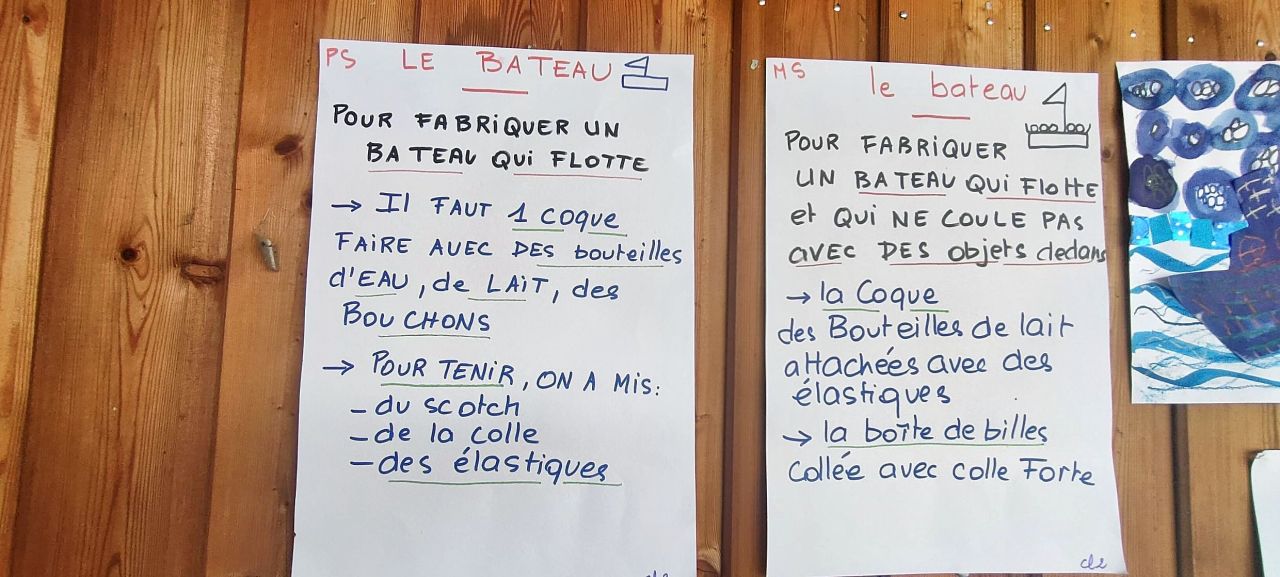 PS LE BATEAU
POUR FABRIQUER UN
BATEAU QUI FLOTTE
→ Il FAUT 1 coque
FAIRE AVEC DES bouteilles
d'EAU, de LAIT, des
BOUCHONS
→ POUR TENIR, ON A MIS:
- du scotch
- de la colle
- des élastiques
MS le bateau
POUR FABRIQUER
UN BATEAU QUI FLOTTE
et QUI NE COULE PAS
AVEC DES objets dedans
→ la Coque
des Bouteilles de lait
attachées avec des
élastiques
→ la boîte de billes
Collée avec colle Forte